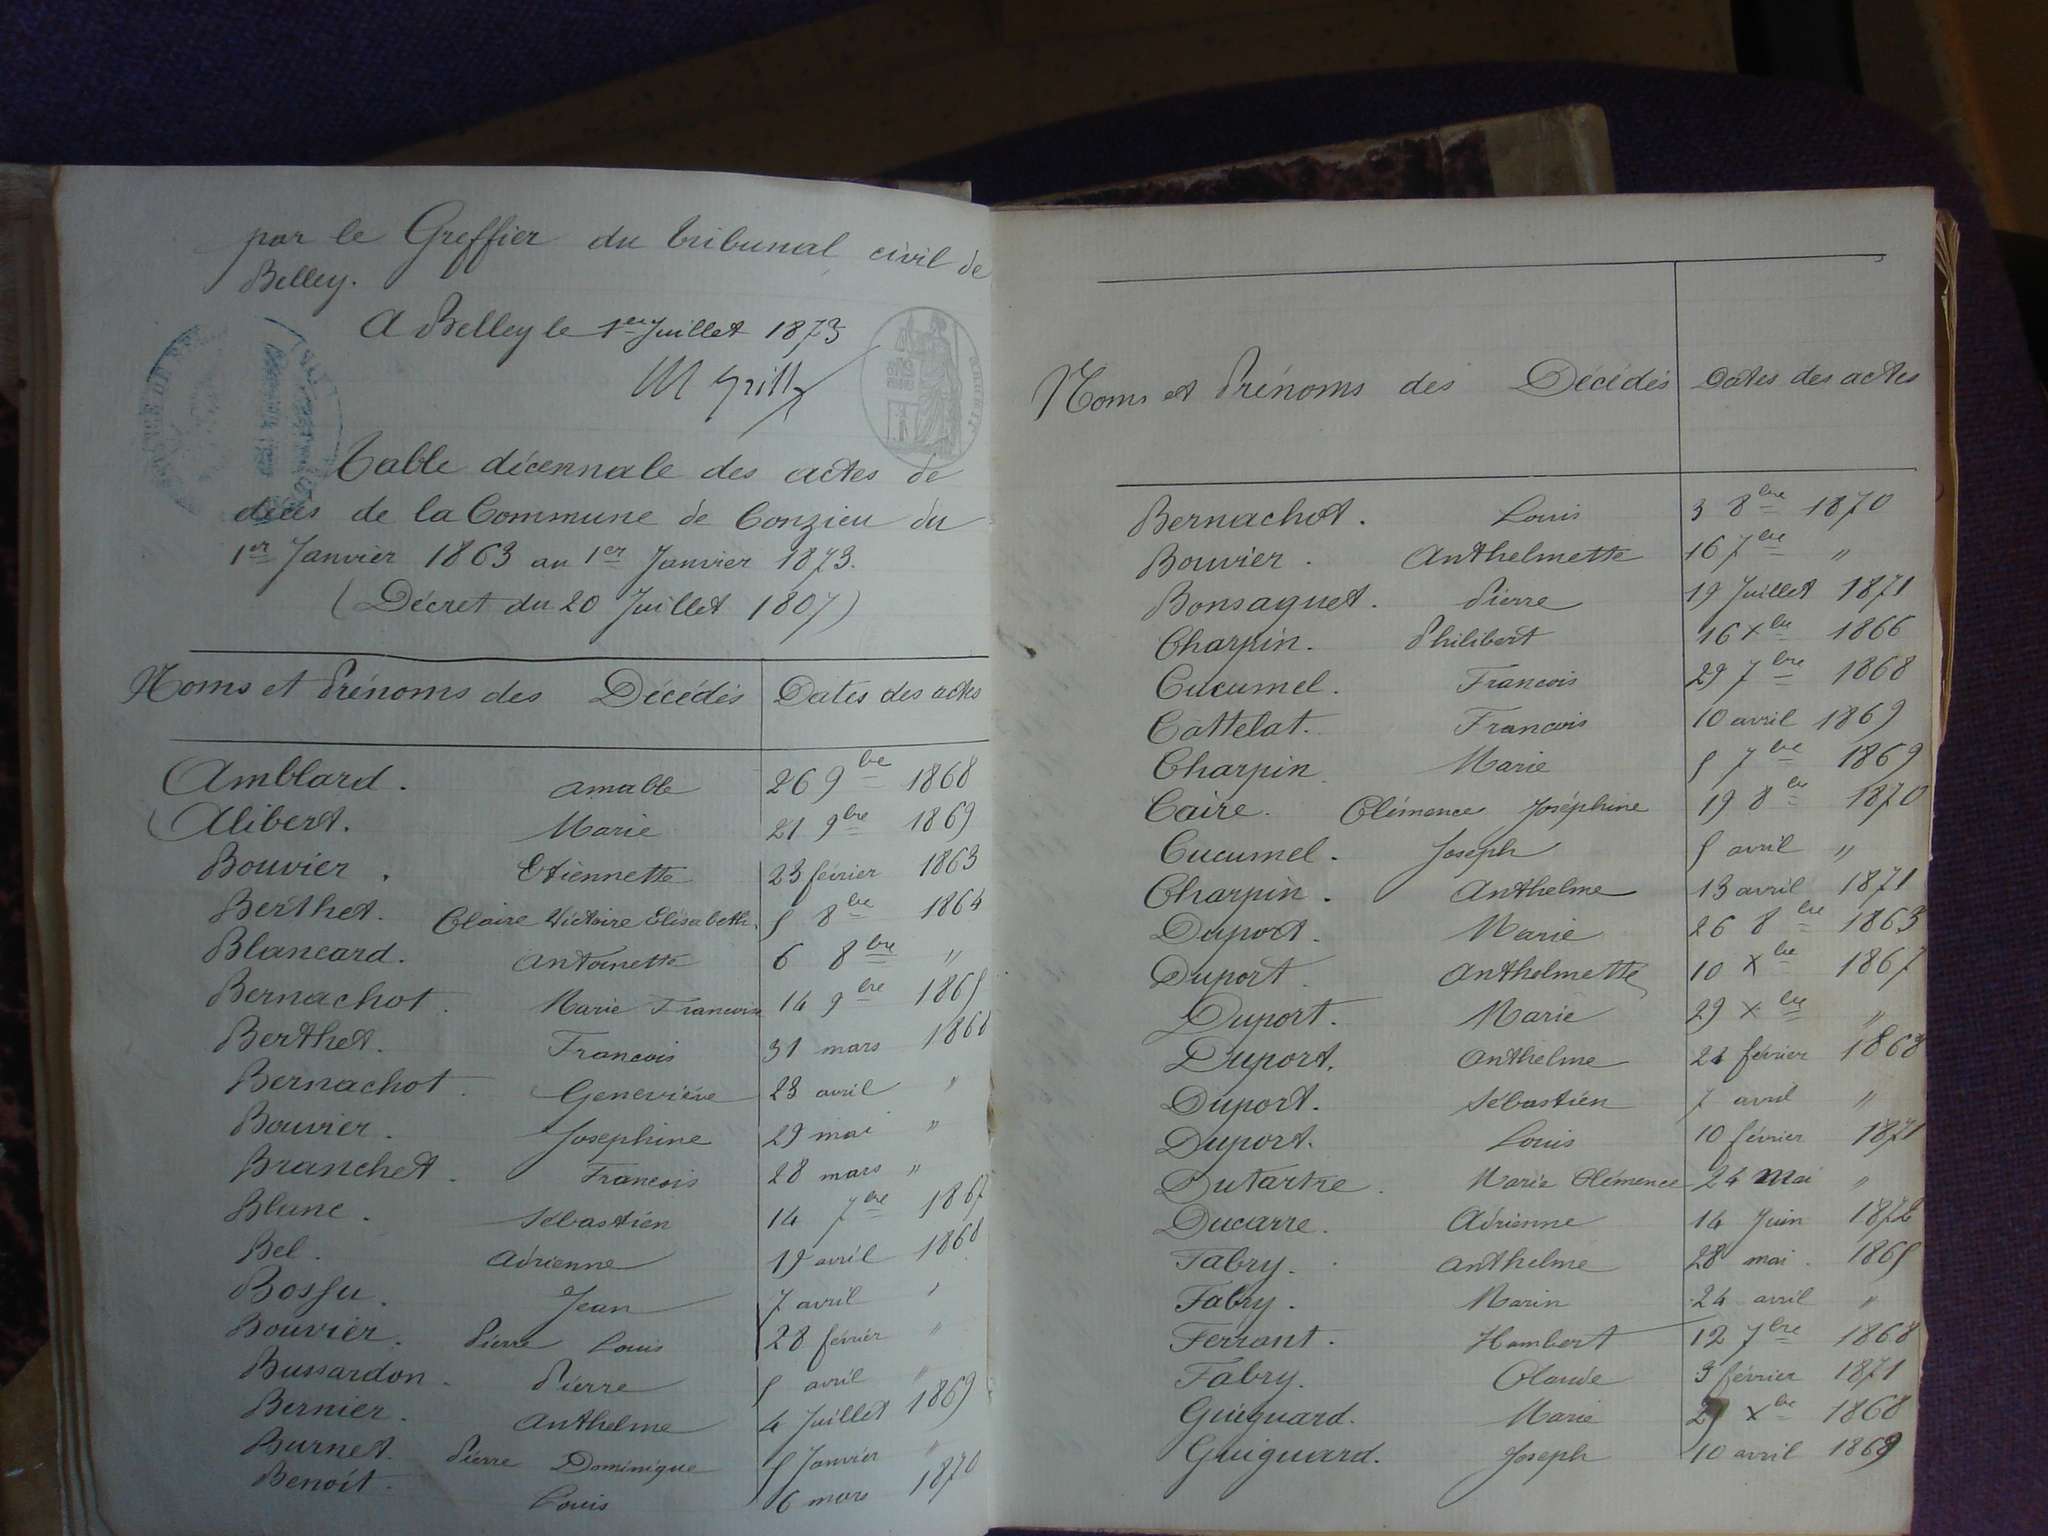 par le Greffier du tribunal civil de
Belley.
A Belley le 1er Juillet 1873
Table décennale des actes de
décès de la Commune de Conzieu du
1er Janvier 1863 au 1er Janvier 1873.
(Décret du 20 Juillet 1807)
Noms et Prénoms des Décédés Dates des actes
Amblard. Amable 26 9bre 1868
Alibert. Marie 21 9bre 1869
Bouvier. Etiennette 23 février 1863
Berthet. Claire Victoire Elisabeth. 5 8bre 1864
Blancard. Antoinette 6 8bre "
Bernachot. Marie 14 9bre 1865
Berthet. Francois 31 mars
Bernachot. Geneviève 23 avril "
Bouvier. Josephine 29 mai "
Branchet. Francois 28 mars "
Blanc. Sébastien 14 7bre 1867
Bel. Adrienne avril 1868
Bossu. Jean 7 avril "
Bouvier. Pierre Louis 28 février "
Bussardon. Pierre 5 avril "
Bernier. Anthelme 4 Juillet 1869
Burnet. Pierre Dominique 5 Janvier "
Benoît. Louis 6 mars 1870
Noms et Prénoms des Décédés Dates des actes
Bernachot. Louis 3 8bre 1870
Bouvier. Anthelmette 16 7bre "
Bonsaquet. Pierre 19 Juillet 1871
Charpin. Philibert 16 Xbre 1866
Cucumel. Francois 29 7bre 1868
Cattelat. Francois 10 avril 1869
Charpin Marie 5 7bre 1869
Caire. Clémence Joséphine 19 8bre 1870
Cucumel. Joseph 5 avril "
Charpin. Anthelme 13 avril 1871
Duport. Marie 26 8bre 1863
Duport. Anthelmette 10 Xbre 1867
Duport. Marie 29 Xbre "
Duport. Anthelme 24 février 1868
Duport. Sébastien 7 avril "
Duport. Louis 10 février 1871
Dutartre. Marie Clémence 24 Mai "
Ducarre. Adrienne 14 Juin 1872
Fabry. Anthelme 28 mai. 1865
Fabry. Marin 24 avril "
Ferrant. Hambert 12 7bre 1868
Fabry. Claude 3 février 1871
Guiguard. Marie Xbre 1868
Guiguard. Joseph 10 avril 1869